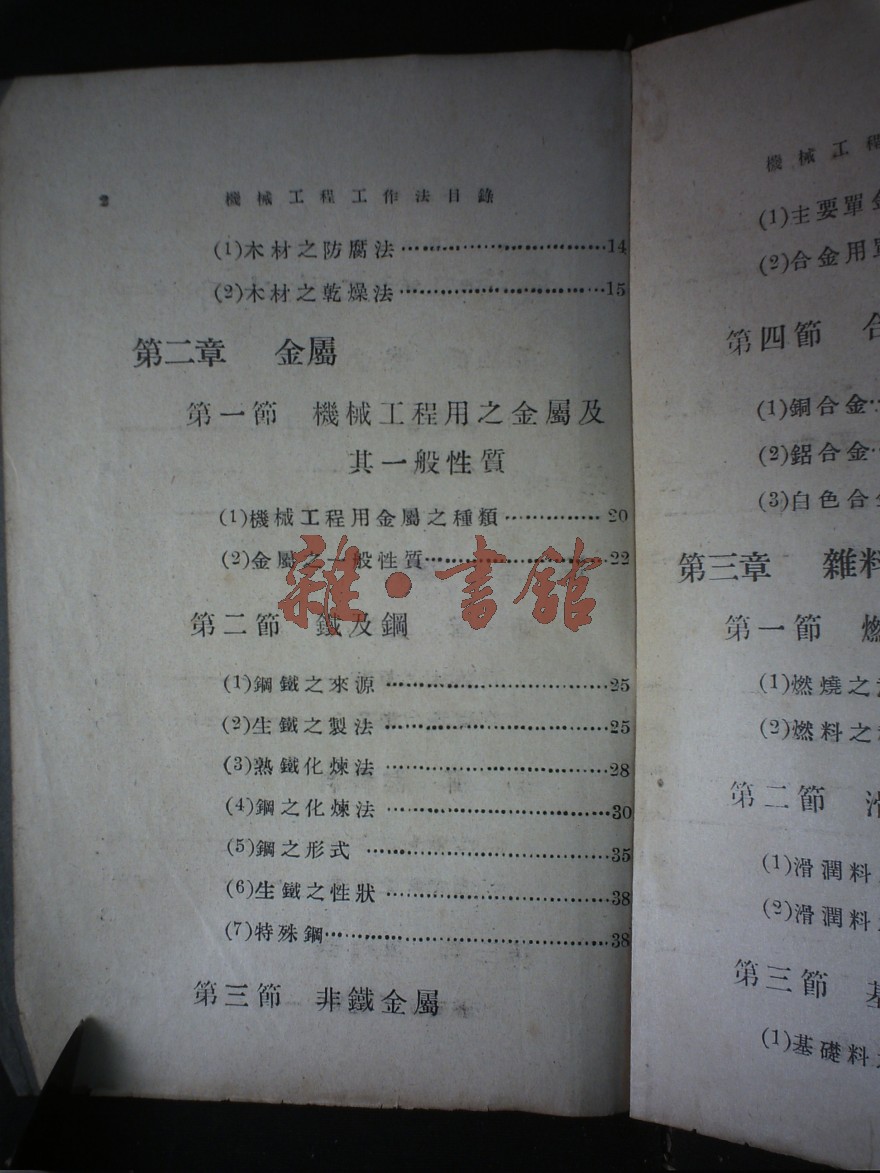 2 機械工程工作法目錄
(1)木材之防腐法……………………14
(2)木材之乾燥法……………………15
第二章 金屬
第一節 機械工程用之金屬及
其一般性質
(1)機械工程用金屬之種類……………20
(2)金屬之一般性質……………………22
第二節 鐵及鋼
(1)鋼鐵之來源……………………25
(2)生鐵之製法……………………25
(3)熟鐵化煉法……………………28
(4)鋼之化煉法……………………30
(5)鋼之形式……………………35
(6)生鐵之性狀……………………38
(7)特殊鋼……………………38
第三節 非鐵金屬
機械工程
(1)主要單金
(2)合金用單
第四節 合
(1)銅合金…
(2)鋁合金…
(3)白色合金
第三章 雜料
第一節 燃
(1)燃燒之
(2)燃料之
第二節 滑
(1)滑潤料
(2)滑潤料
第三節 基
(1)基礎料
雜·書館